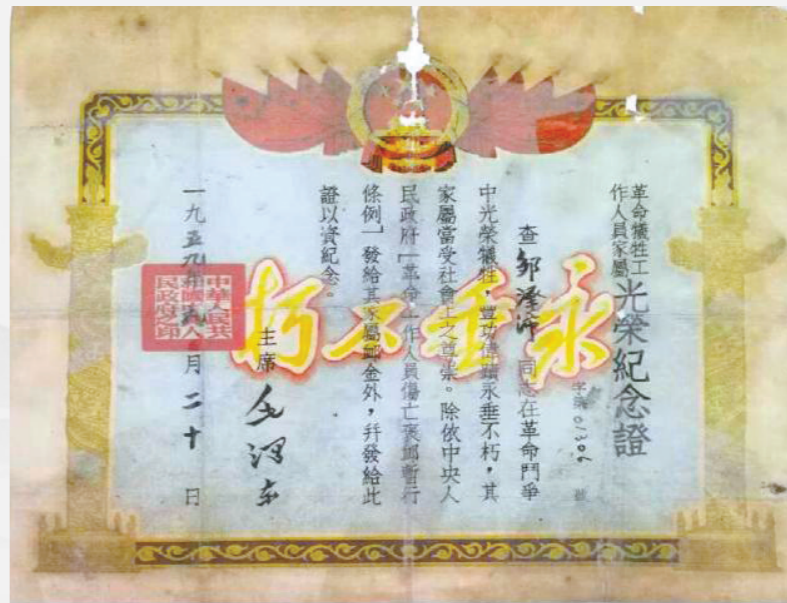 革命犧牲工
作人員家屬
光榮紀念證
字第01306號
查邹澤沛同志在革命鬥爭
中光榮犧牲,豐功偉績永垂不朽,其
家屬當受社會上之尊崇。除依中央人
民政府「革命工作人員傷亡褒卹暫行
條例」發給其家屬卹金外,幷發給此
證以資紀念。
主席 毛澤东
一九五九年 月二十日
永垂不朽
中華人民共
和國中央人
民政府之印